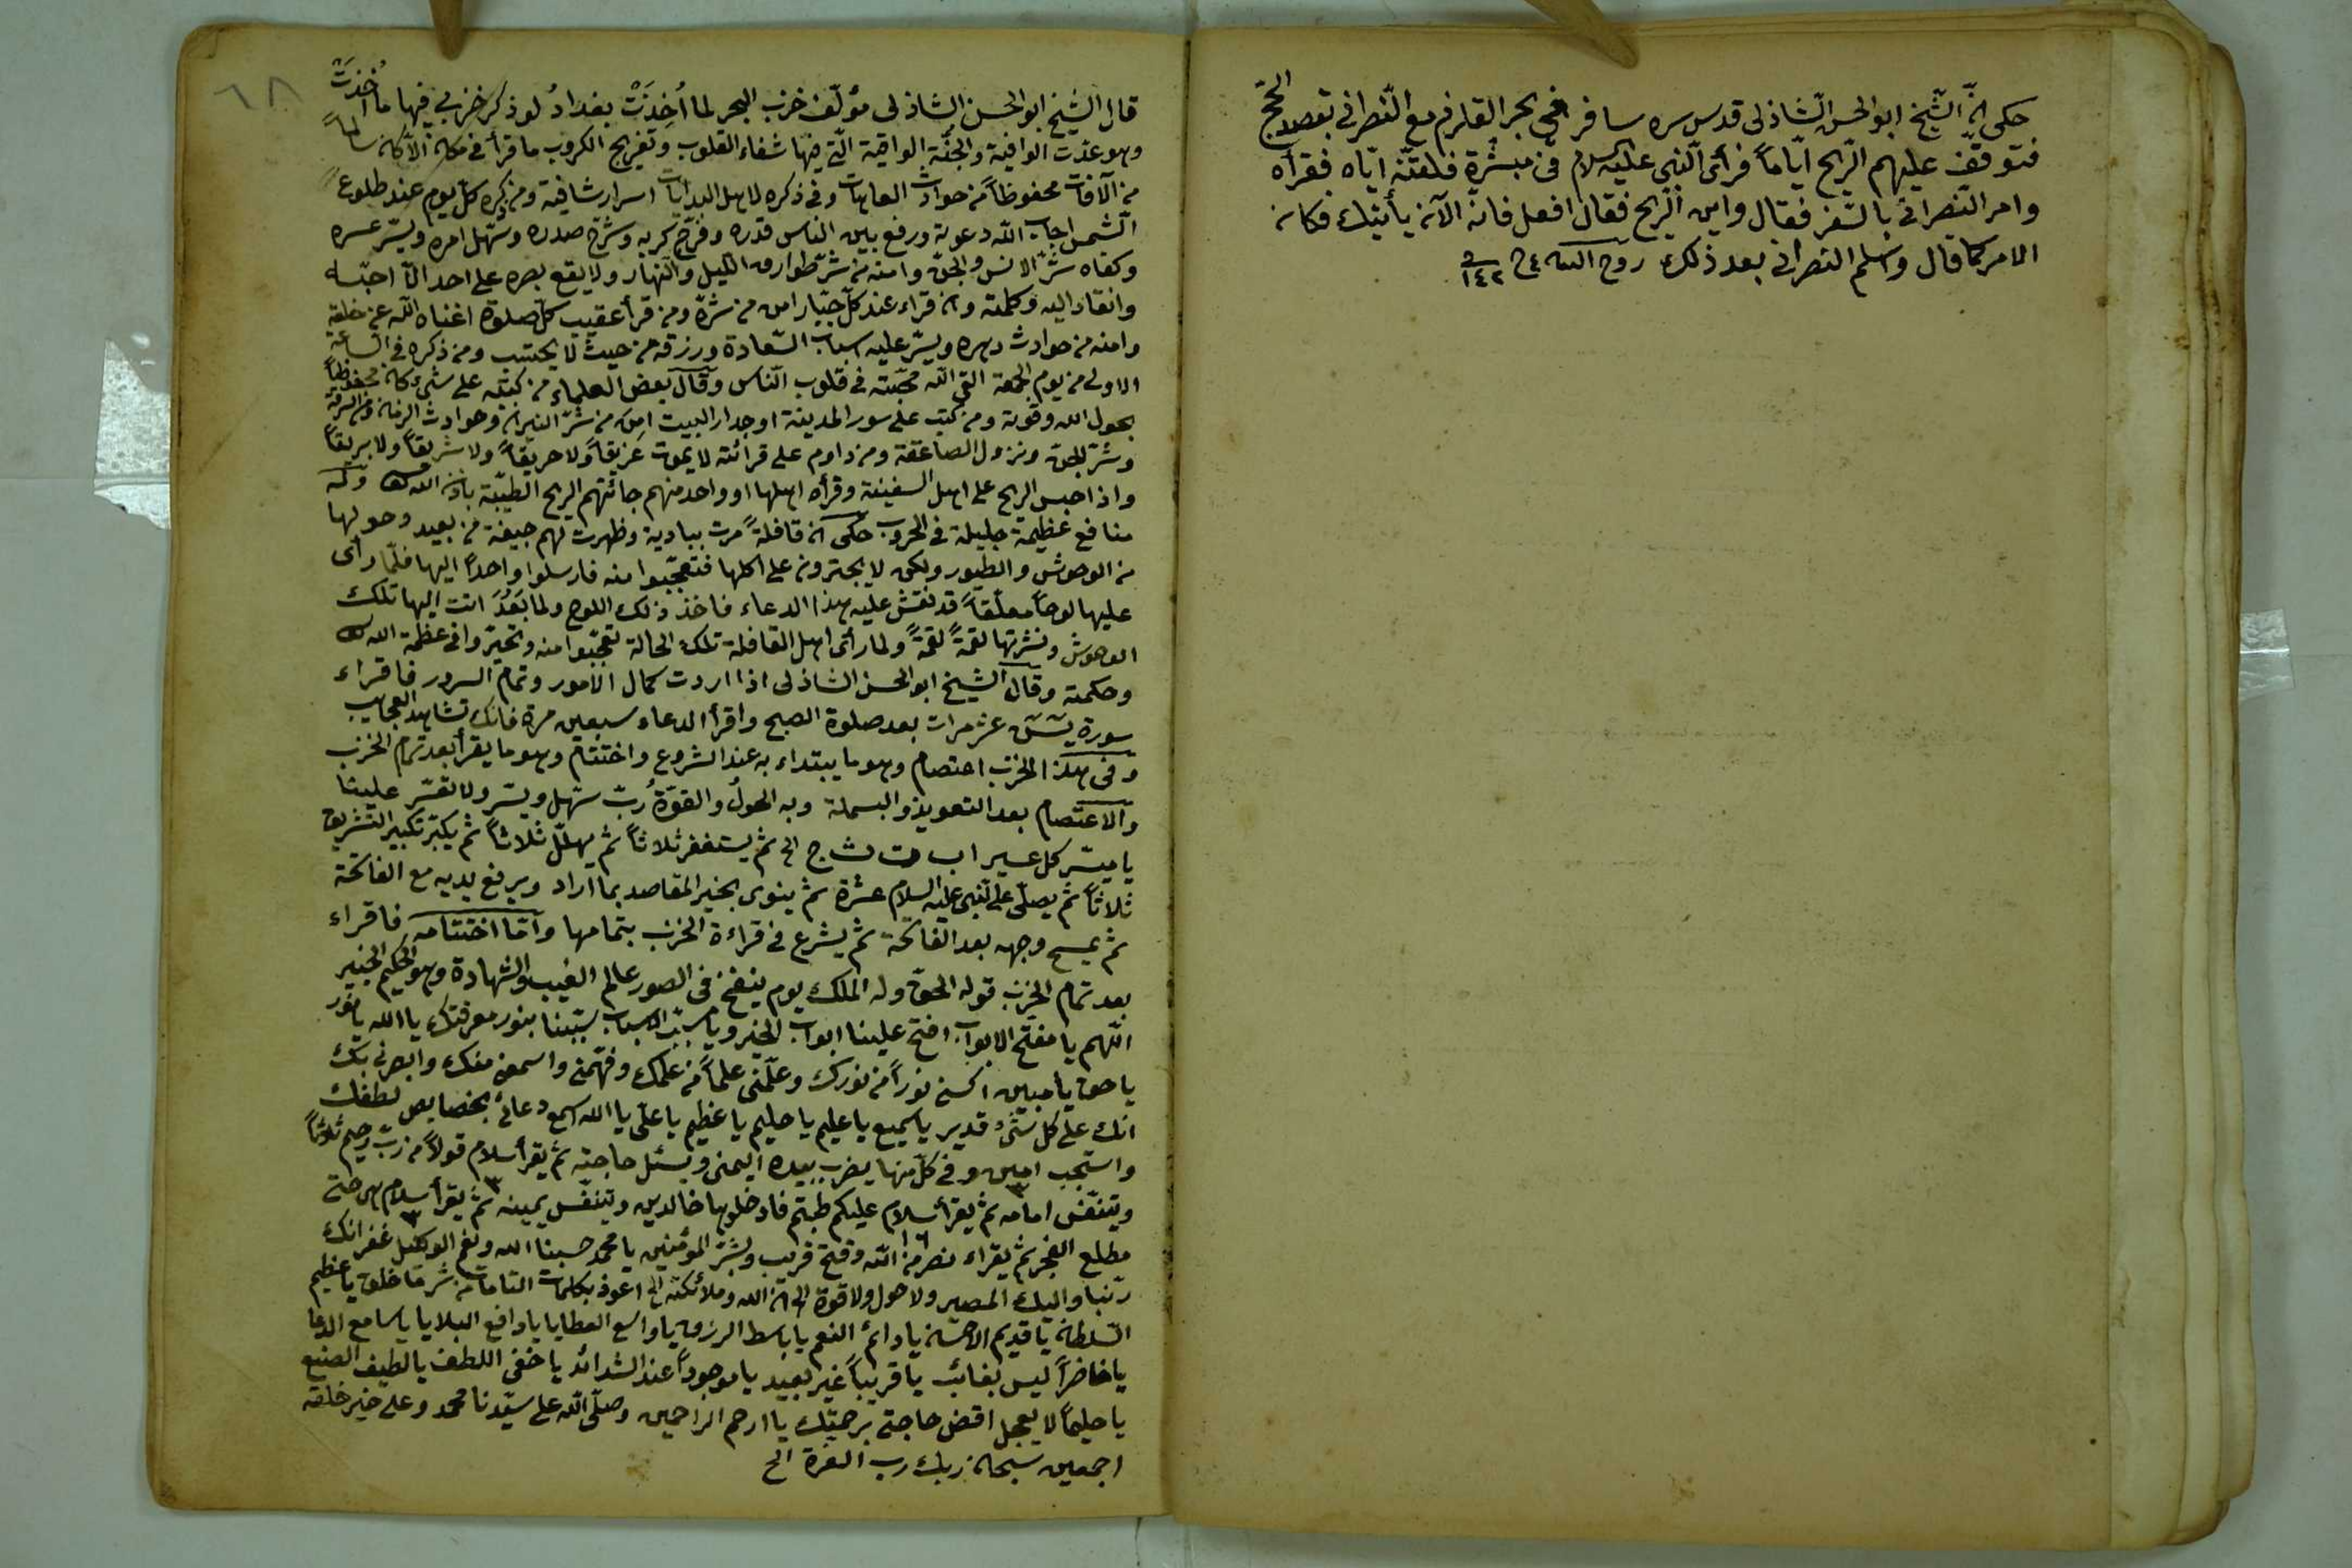 حكى انّ الشّيخ ابو الحسن الشّاذلى قدس سره سافر فى بحر القلزم مع النّصرانى بقصد الحجّ
فتوقّف عليهم الرّيح ايّاماً فرأى النّبى عليه السلام فى مبشّرة فلقّنه ايّاه فقرأه
وامر النّصرانى بالسّفر فقال واين الرّيح فقال افعل فانه الآن يأتيك فكان
الامر كما قال واسلم النصرانى بعد ذلك روح
٦٨
قال الشيخ ابو الحسن الشاذلى مؤلّف حزب البحر لما اُخِذَتْ بغدادُ لو ذكر حزبى فيها ما اُخِذَتْ
وهو عدّت الوافية والجُنّة الواقية الّتى فيها شفاء القلوب وتفريج الكروب ما قرأ فى مكان الّا كان سالماً
من الآفات محفوظاً من حوادث العاهات وفى ذكره لاهل البدايات اسرار شافية ومن ذكره كلّ يوم عند طلوع
الشّمس اجاب الله دعوته ورفع بين الناس قدره وفرّج كربه وشرح صدره وسهّل امره ويسّر عسره
وكفاه شرّ الانس والجنّ وامنه من شرّ طوارق اللّيل والنّهار ولا يقع بصره على احد الّا احبّه
وانقاد اليه وكلمته وان قراء عند كلّ جبّار امن من شرّه ومن قرأ عقيب كلّ صلوة اغناه الله عن خلقه
وامنه من حوادث دهره ويسّر عليه اسباب السّعادة ورزقه من حيث لا يحتسب ومن ذكره فى السّاعة
الاولى من يوم الجمعة القى الله محبّته فى قلوب النّاس وقال بعض العلماء من كتبه على شئ كان محفوظاً
بحول الله وقوته ومن كتب على سور المدينة او جدار البيت امن من شرّ النيران وحوادث الزمان ومن السرقة
وشرّ الجنّ ونزول الصاعقة ومن داوم على قرائته لا يموت غريقاً ولا حريقاً ولا شريقاً ولا بريقاً
واذا حبس الريح على اهل السفينة وقرأه اهلها او واحد منهم جائتهم الريح الطيّبة باذن الله تعالى وله
منافع عظيمة جليلة فى الحروب حكى ان قافلةً مرت ببادية وظهرت لهم جيفة من بعيد وحولها
من الوحوش والطيور ولكن لا يجترون على اكلها فتعجّبوا منه فارسلوا واحداً اليها فلمّا رأى
عليها لوحاً معلّقاً قد نقش عليه هذا الدعاء فاخذ ذلك اللوح ولما بَعُدَ اتت اليها تلك
الوحوش ونشرتها لقمةً لقمةً ولما رأى اهل القافلة تلك الحالة تعجّبوا منه وتحيّروا فى عظمة الله تعالى
وحكمته وقال الشيخ ابو الحسن الشاذلى اذا اردت كمال الامور وتمام السرور فاقراء
سورة يس عشر مرات بعد صلوة الصبح واقرأ الدعاء سبعين مرة فانك تشاهد العجايب
وفى هذا الحزب اعتصام وهو ما يبتداء به عند الشروع واختتام وهو ما يقرأ بعد تمام الحزب
والاعتصام بعد التعويذ والبسملة وبه الحولُ والقوّةُ ربّ سهّل ويسّر ولا تعسّر علينا
يا ميسّر كل عسير ا ب ت ث ج الخ ثم يستغفر ثلاثاً ثم يهلّل ثلاثاً ثم يكبّر تكبير التشريق
ثلاثاً ثم يصلّى على النّبى عليه السلام عشرة ثم ينوى بخير المقاصد بما اراد ويرفع يديه مع الفاتحة
ثم يمسح وجهه بعد الفاتحة ثم يشرع فى قراءة الحزب بتمامها وامّا اختتامه فاقراء
بعد تمام الحزب قوله الحقّ وله الملك يوم ينفخ فى الصور عالم الغيب والشهادة وهو الحكيم الخبير
اللّهم يا مفتّح الابواب افتح علينا ابواب الخير ويا مسبّب الاسباب سبّبنا بنور معرفتك يا الله يا نور
يا حق يا مبين اكسنى نوراً من نورك وعلّمنى علماً من علمك وفهّمنى واسمعنى منك وابصرنى بك
انك على كل شئ قدير يا سميع يا عليم يا حليم يا عظيم يا علىّ يا الله اسمع دعائى بخصايص لطفك
واستجب امين وفى كلّ منها يضرب بيده اليمنى ويسئل حاجته ثم يقرأ سلام قولاً من ربّ رحيم ثلاثاً
ويتنفّس امامه ثم يقرأ سلام عليكم طبتم فادخلوها خالدين ويتنفّس يمينه ثم يقرأ سلام هى حتى
مطلع الفجر ثم يقراء نصر من الله وفتح قريب وبشّر المؤمنين يا محمد حسبنا الله ونعم الوكيل غفرانك
ربّنا واليك المصير ولا حول ولا قوة الخ ان الله وملائكته الخ اعوذ بكلمات التامات من شر ما خلق يا عظيم
السّلطان يا قديم الاحسان يا دائم النعم يا باسط الرزق يا واسع العطايا يا دافع البلايا يا سامع الدعا
يا حاضراً ليس بغائب يا قريباً غير بعيد يا موجوداً عند الشدائد يا خفى اللطف يا لطيف الصنع
يا حليماً لا يعجل اقض حاجتى برحمتك يا ارحم الراحمين وصلّى الله على سيّدنا محمد وعلى خير خلقه
اجمعين سبحان ربك رب العزة الخ